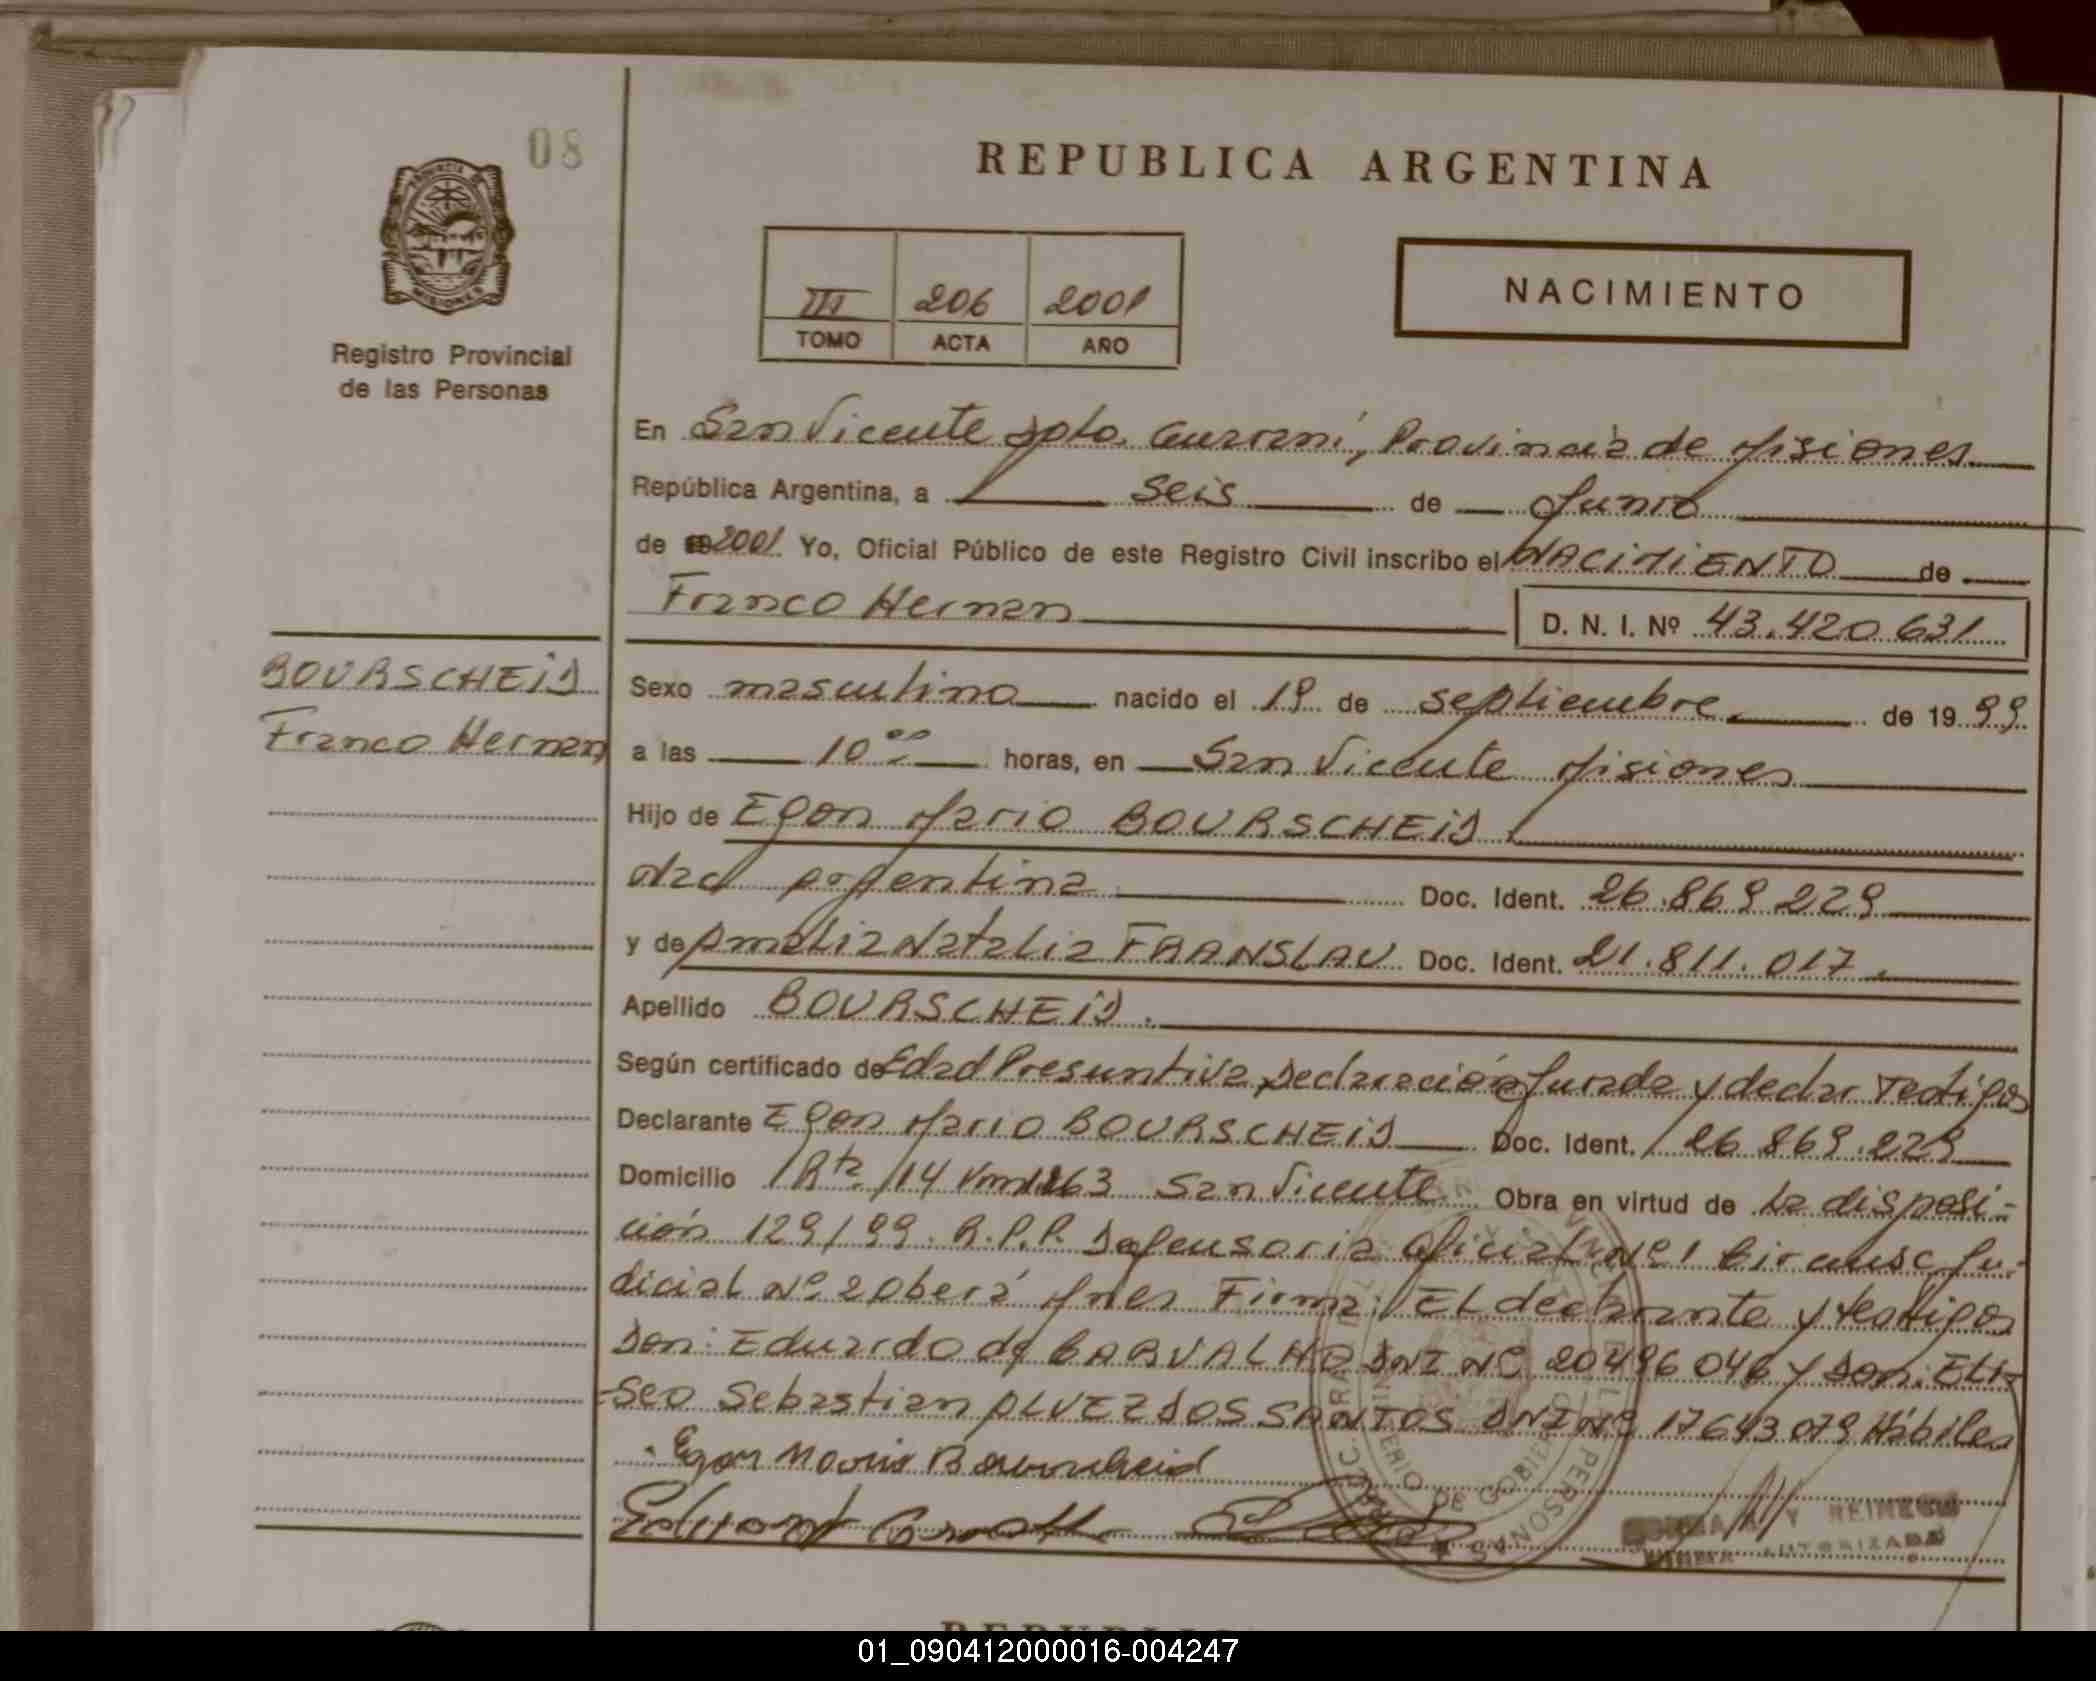 08
REPUBLICA ARGENTINA
PROVINCIA DE
MISIONES
Registro Provincial
de las Personas
III 206 2001
TOMO ACTA AÑO
NACIMIENTO
En San Vicente Dpto. Guarani, Provincia de Misiones
República Argentina, a seis de Junio
de 2001. Yo, Oficial Público de este Registro Civil inscribo el NACIMIENTO de
Franco Hernan D. N. I. Nº 43.420.631
BOURSCHEID
Franco Hernan
Sexo masculino nacido el 19 de septiembre de 19 99
a las 10 00 horas, en San Vicente Misiones
Hijo de Egon Mario BOURSCHEID
Nac Argentina Doc. Ident. 26.869.229
y de Amalia Natalia FRANSLAU Doc. Ident. 21.811.017.
Apellido BOURSCHEID.
Según certificado de Edad Presuntiva, Declaración Jurada y declar Testigos
Declarante Egon Mario BOURSCHEID Doc. Ident. 26.869.229
Domicilio Rta 14 Km 1263 San Vicente Obra en virtud de La disposi-
ción 129/99. R.P.P. Defensoria Oficial Nº 1 Circunsc Ju-
dicial Nº 2 Oberá Mnes Firma: El declarante y testigos
Don: Eduardo de CARVALHO DNI Nº 20496046 y Don: ELI-
SEO Sebastian ALVEZ DOS SANTOS DNI Nº 17643079 Hábiles
Egon Mario Bourscheid
Y REINECK
AUTORIZADA
PERSONAS
DE GOBIERNO
REPUBLIC
01_090412000016-004247